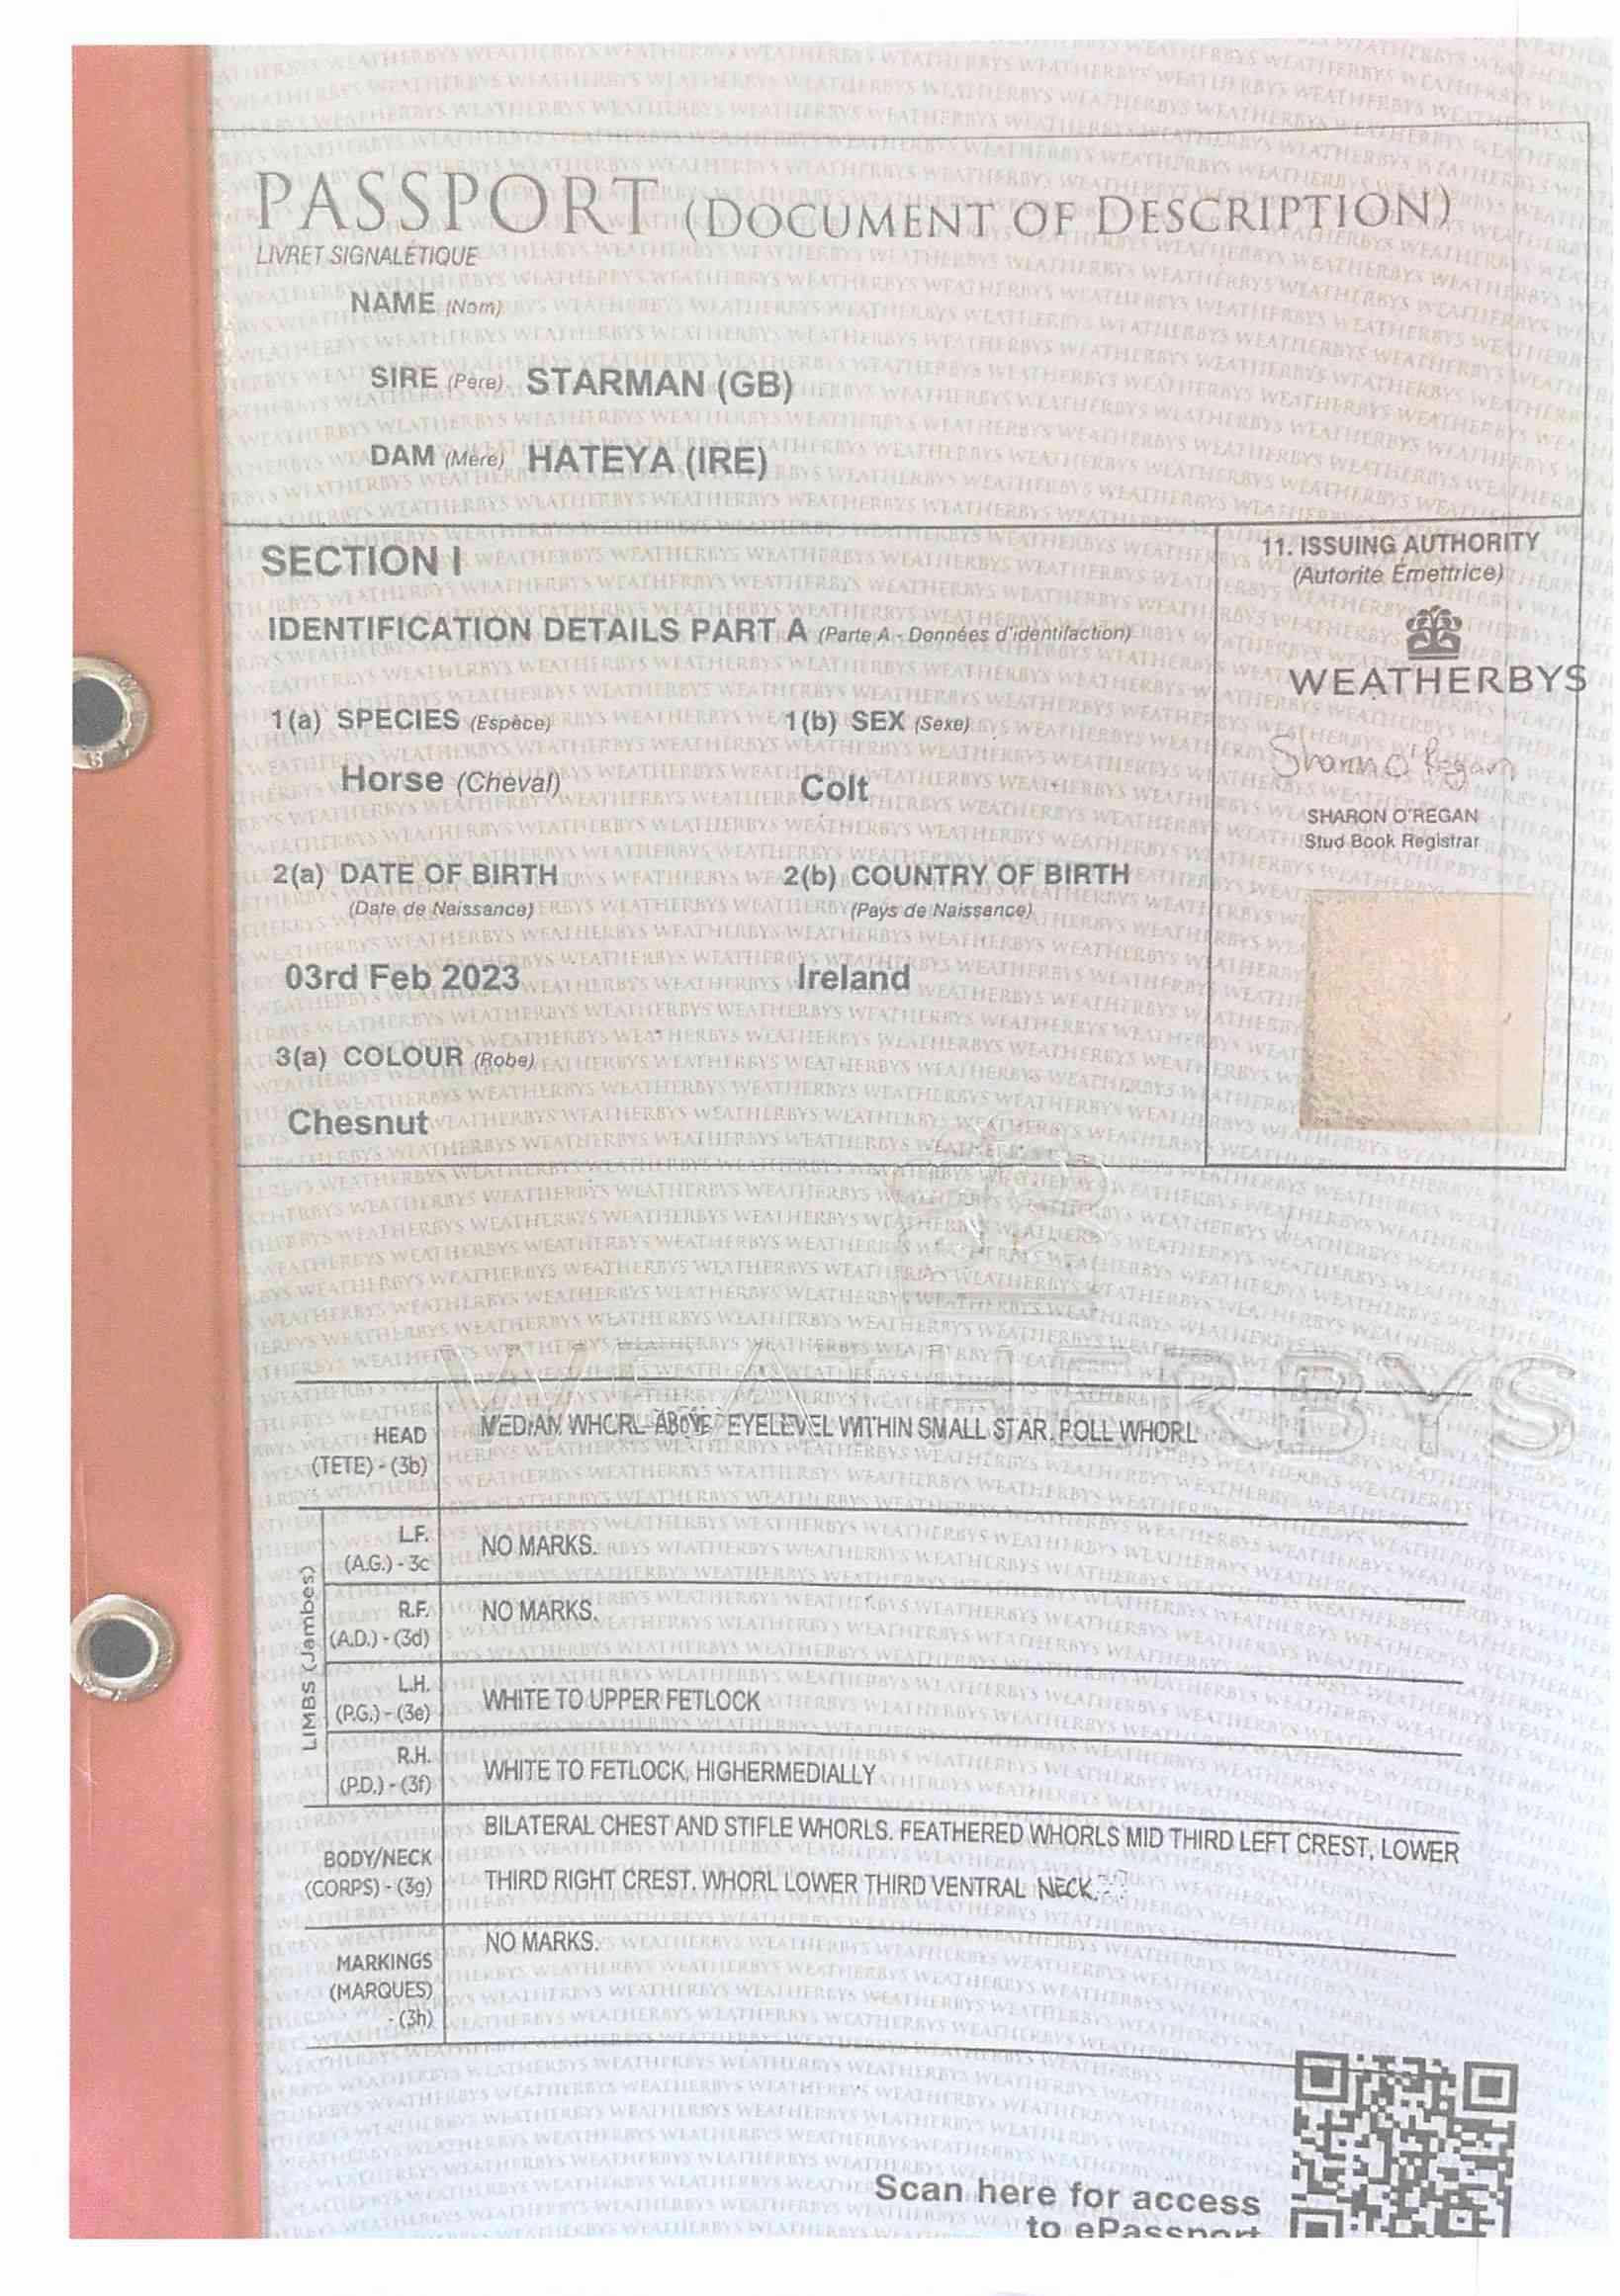 PASSPORT (DOCUMENT OF DESCRIPTION)
LIVRET SIGNALÉTIQUE
NAME (Nom)
SIRE (Père) STARMAN (GB)
DAM (Mère) HATEYA (IRE)
SECTION I
11. ISSUING AUTHORITY
(Autorité Émettrice)
IDENTIFICATION DETAILS PART A (Parte A - Données d'identifaction)
WEATHERBYS
1(a) SPECIES (Espèce)
1(b) SEX (Sexe)
Horse (Cheval)
Colt
Sharon O'Regan
SHARON O'REGAN
Stud Book Registrar
2(a) DATE OF BIRTH
(Date de Naissance)
2(b) COUNTRY OF BIRTH
(Pays de Naissance)
03rd Feb 2023
Ireland
3(a) COLOUR (Robe)
Chesnut
WEATHERBYS
HEAD
(TETE) - (3b)
MEDIAN WHORL ABOVE EYELEVEL WITHIN SMALL STAR. POLL WHORL
LIMBS (Jambes)
L.F.
(A.G.) - 3c
NO MARKS.
R.F.
(A.D.) - (3d)
NO MARKS.
L.H.
(P.G.) - (3e)
WHITE TO UPPER FETLOCK
R.H.
(P.D.) - (3f)
WHITE TO FETLOCK, HIGHERMEDIALLY
BODY/NECK
(CORPS) - (3g)
BILATERAL CHEST AND STIFLE WHORLS. FEATHERED WHORLS MID THIRD LEFT CREST, LOWER
THIRD RIGHT CREST. WHORL LOWER THIRD VENTRAL NECK.
MARKINGS
(MARQUES)
- (3h)
NO MARKS.
Scan here for access
to ePassport